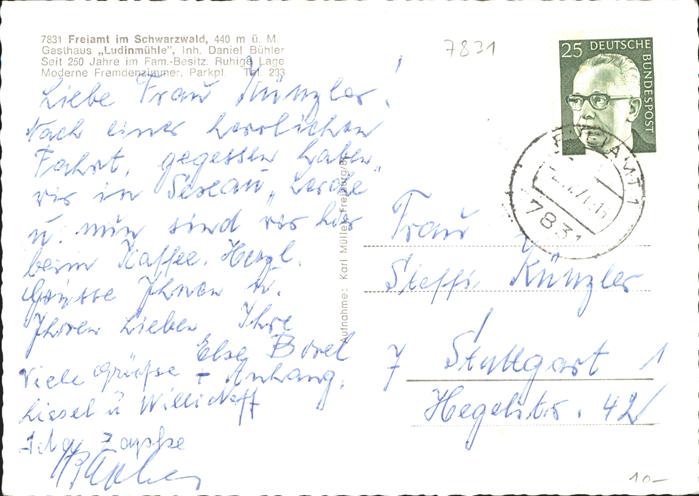 7831 Freiamt im Schwarzwald, 440 m ü. M.
Gasthaus „Ludinmühle", Inh. Daniel Bühler
Seit 250 Jahre im Fam.-Besitz. Ruhige Lage
Moderne Fremdenzimmer, Parkpl. Tel. 233
7831
25 DEUTSCHE BUNDESPOST
FREIAMT 1
7831
Liebe Frau Künzler!
Nach einer herrlichen
Fahrt, gegessen haben
wir in Sexau, „Lerche"
u. nun sind wir hier
beim Kaffee. Herzl.
Grüsse Ihnen u.
Ihren Lieben Ihre
Else Borel
Viele Grüsse – Anhang.
Liesel u Willi
Zapfe
Aufnahme: Karl Müller, Freiburg/Br.
Frau
Steffi Künzler
7 Stuttgart 1
Hegelstr. 42/
10.-